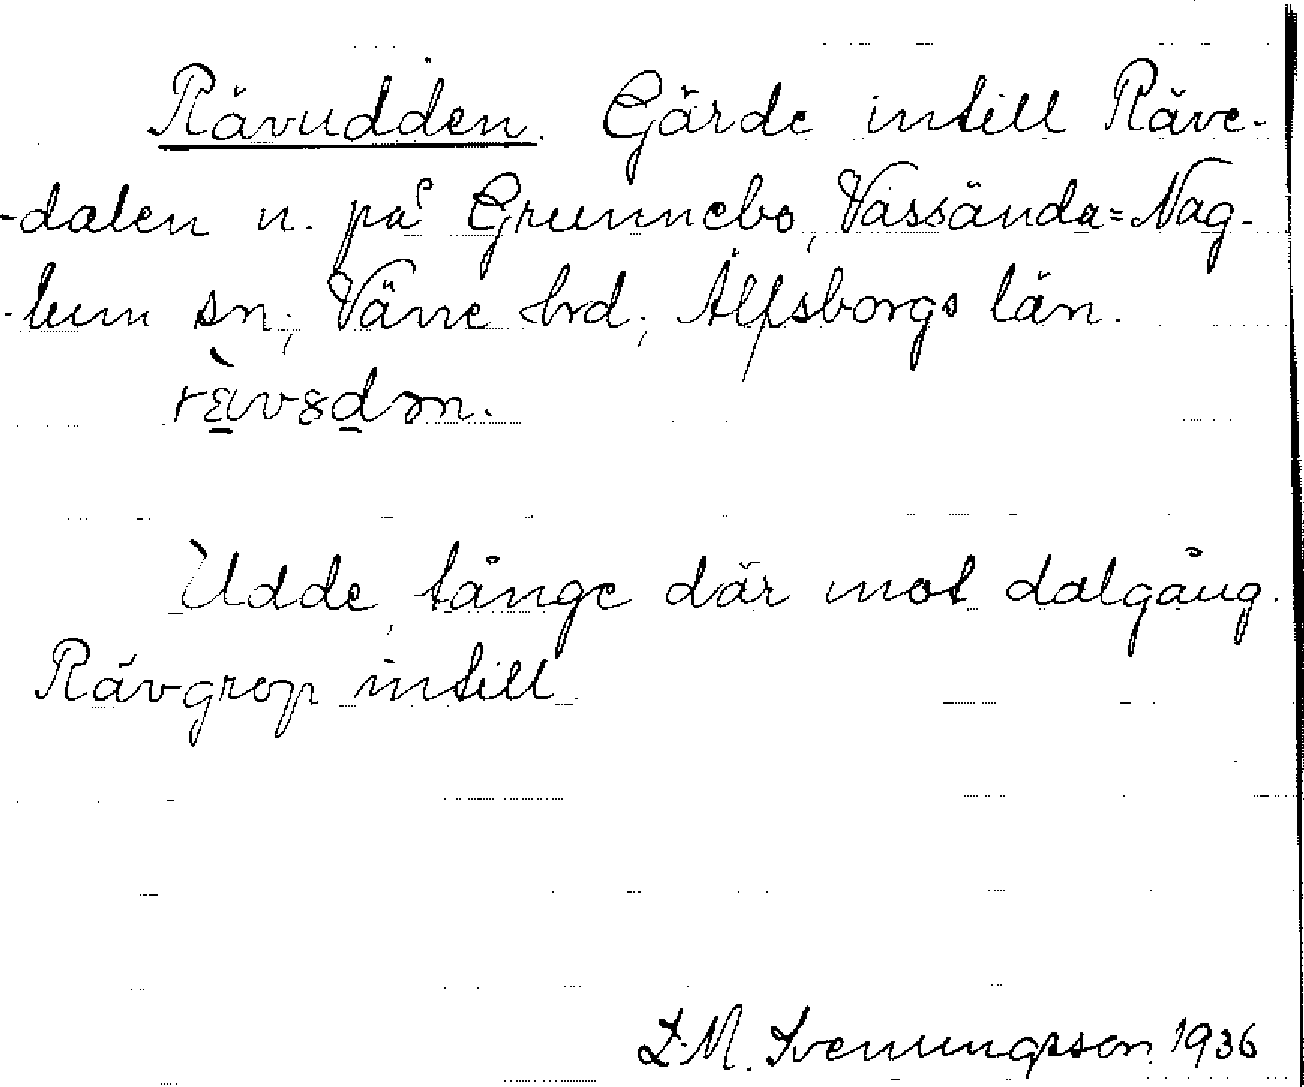 Rävudden. Gärde intill Räve-
-dalen n. på Grunnebo, Vassända=Nag-
-lum sn; Väne hrd; Älfsborgs län.
rävɞdən.
Udde, tånge där mot dalgång.
Rävgrop intill
D.M. Svenungsson 1936